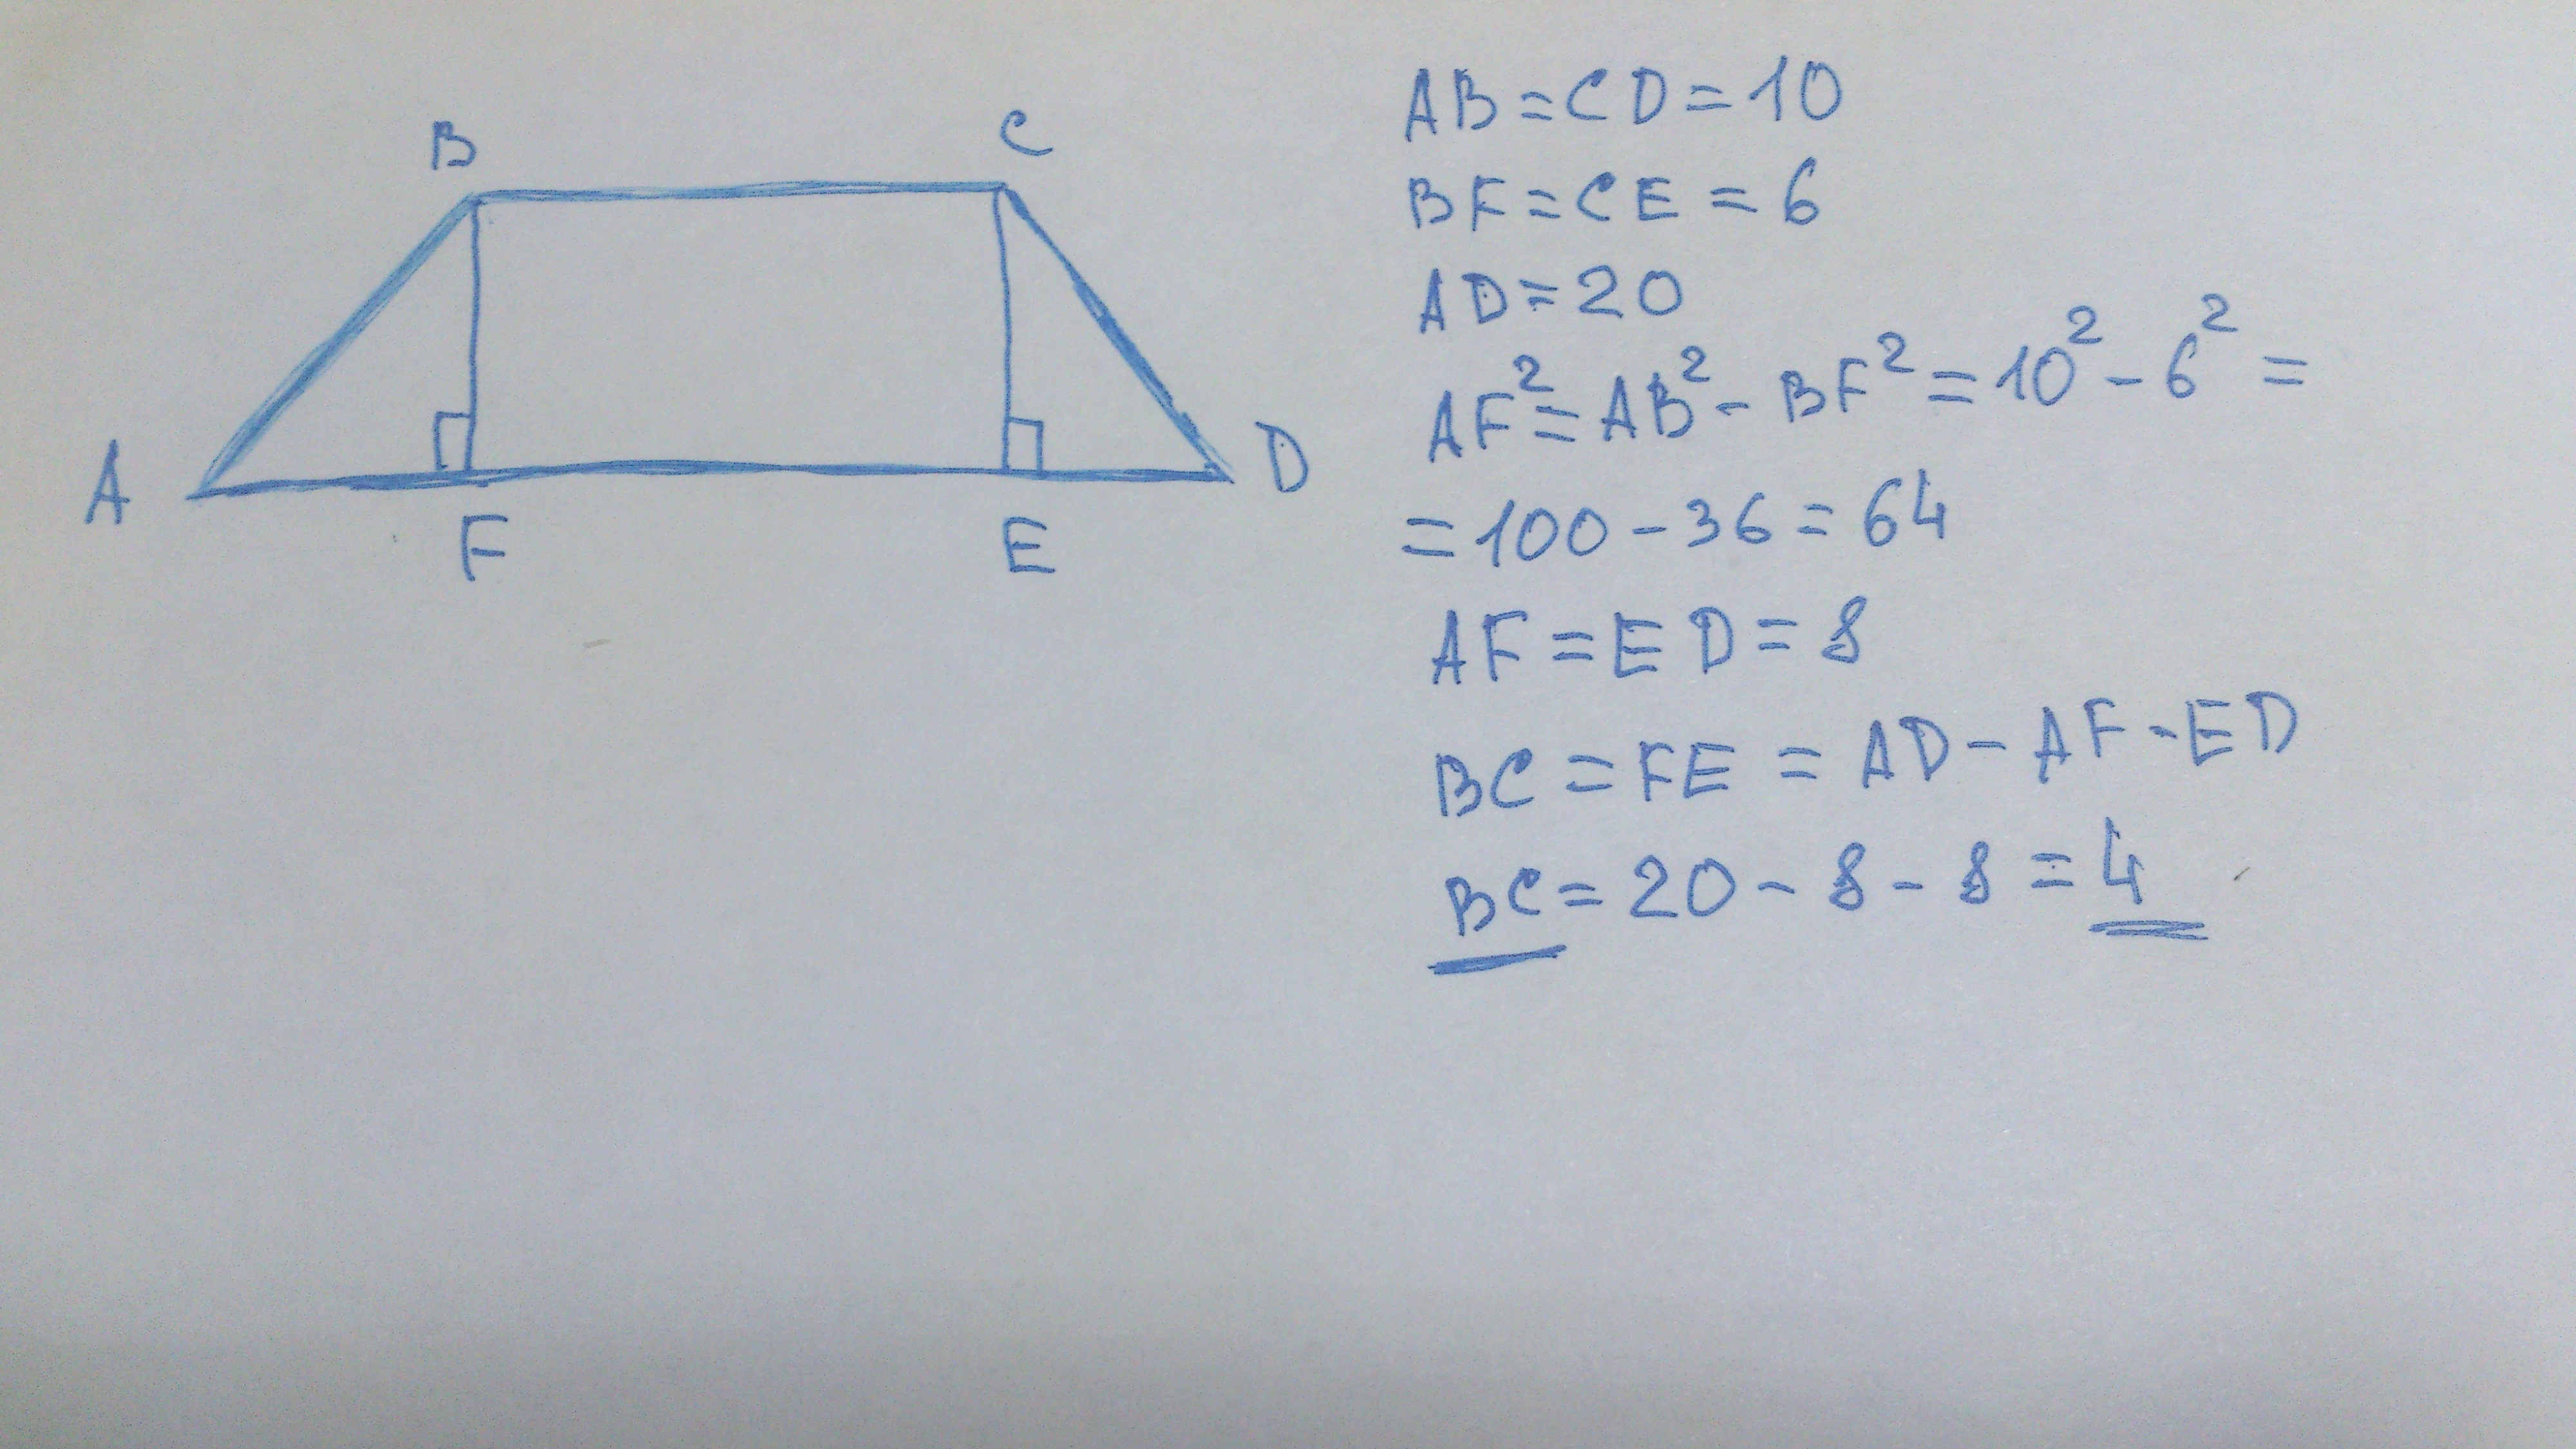 B C
A D
F E
AB = CD = 10
BF = CE = 6
AD = 20
AF² = AB² - BF² = 10² - 6² =
= 100 - 36 = 64
AF = ED = 8
BC = FE = AD - AF - ED
BC = 20 - 8 - 8 = 4